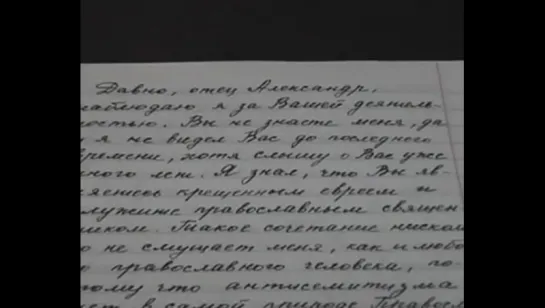 Давно, отец Александр,
наблюдаю я за Вашей деятель-
ностью. Вы не знаете меня, да
и я не видел Вас до последнего
времени, хотя слышу о Вас уже
много лет. Я знал, что Вы яв-
ляетесь крещенным евреем и
служите православным священ
ником. Такое сочетание нисколь
о не смущает меня, как и любо
о православного человека, по-
тому что антисемитизма
нет в самой природе Правосл